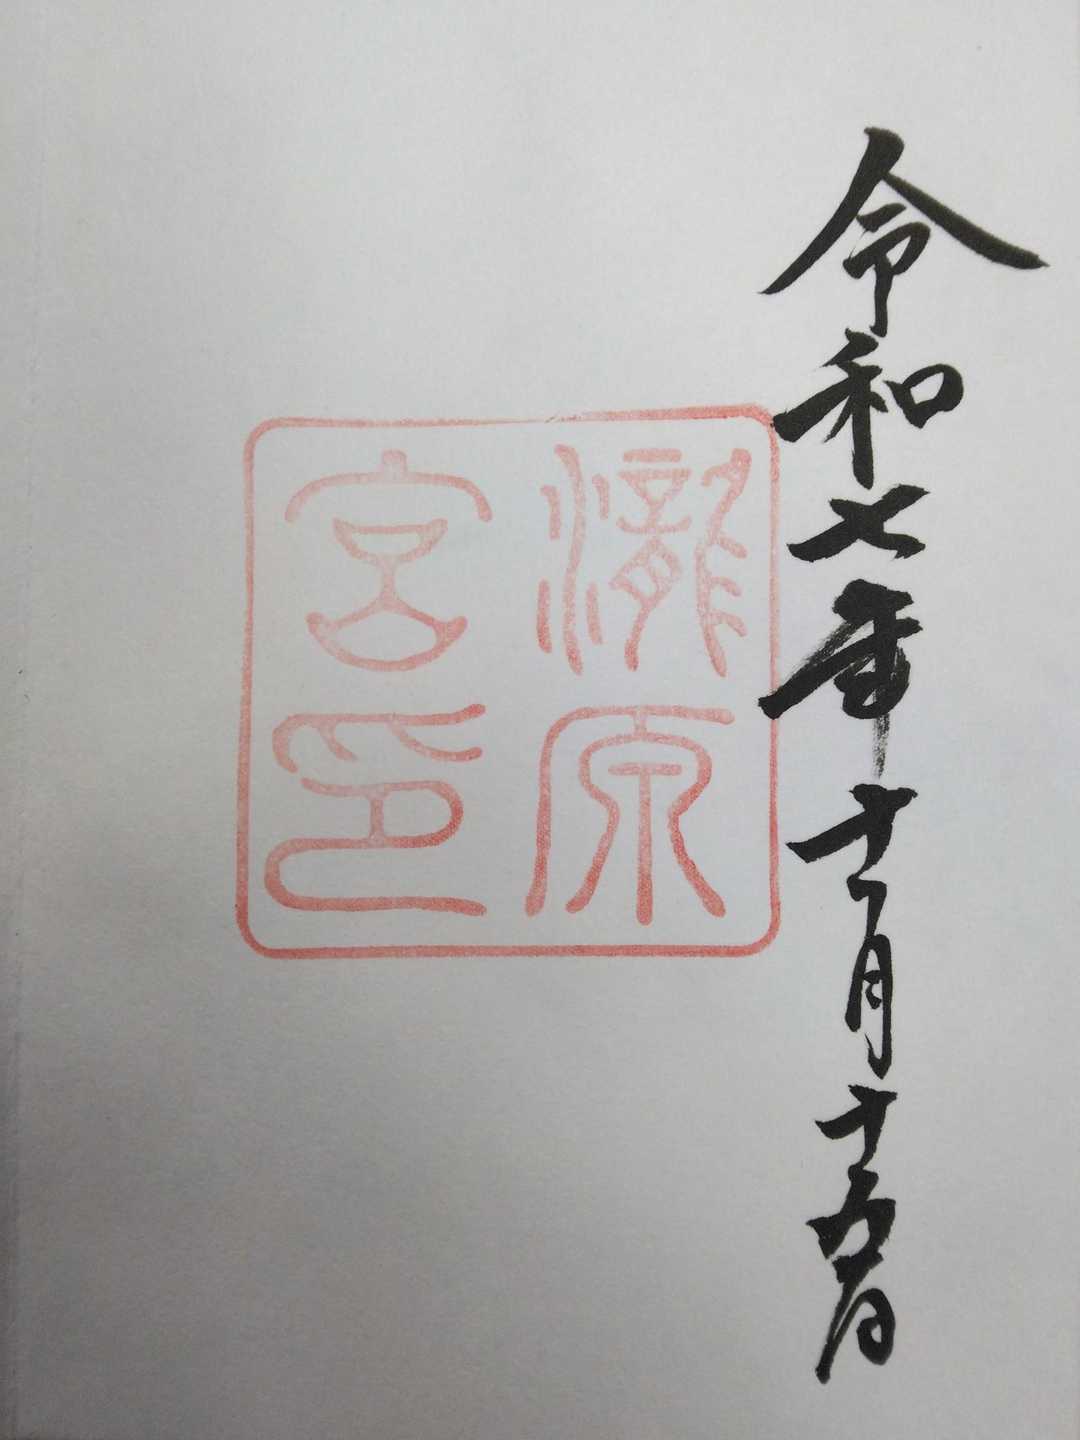 令和七年十一月十五日
瀧原
宮印